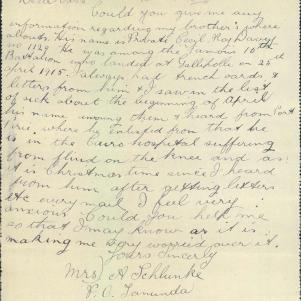 Dear Sir
Could you give me any
information regarding my brother's where
abouts, his name is Private Cecil Roy Davey
no 1129 He was among the famous 10th
Battalion who landed at Gallipolie on 25th
April 1915. I always had trench cards &
letters from him & I saw in the list
of sick about the beginning of April
his name among them & heard from Port
Pirie, where he enlisted from that he
is in the Cairo hospital suffering
from fluid on the knee and as
it is Christmas time since I heard
from him after getting letters
etc every mail I feel very
anxious Could you help me
so that I may know as it is
making me very worried over it.
Yours Sincerly
Mrs A Schlunke
P.O. Tanunda